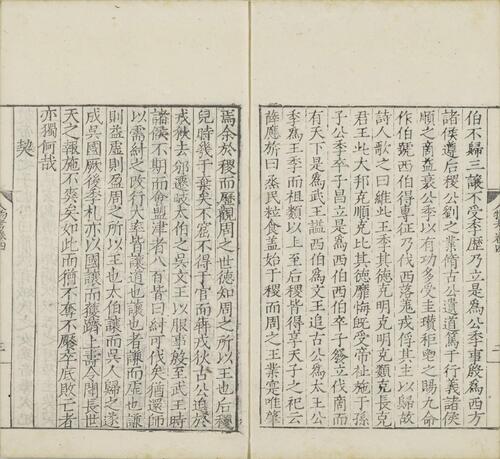 伯不歸三讓不受季歷乃立是爲公季公季事殷爲西方
諸侯遵后稷公劉之業脩古公遺道篤于行義諸侯
順之商益衰公季以有功多受圭瓚秬鬯之賜九命
作伯號西伯得專征乃伐西落鬼戎俘其王以歸故
詩人歌之曰維此王季其德克明克明克類克長克
君王此大邦克順克比其德靡悔既受帝祉施于孫
子公季卒子昌立是爲西伯西伯卒子發立伐商而
有天下是爲武王謚西伯爲文王追古公爲太王公
季爲王季而祖類以上至后稷皆得享天子之祀云
薛應旂曰烝民粒食蓋始于稷而周之王業寔唯肇
焉余於稷而歷觀周之世德知周之所以王也后稷
兒時幾于棄矣不窋不得于官而犇戎狄古公迫於
戎狄去邠邀岐太伯之吳文王以服事殷至武王時
諸侯不期而會盟津者八百皆曰紂可伐矣猶還師
以需紂之改行大率皆讓道也讓也者謙而虛也謙
則益虛則盈周之所以王也太伯讓而吳人歸之遂
成吳國厥後季札亦以國讓而獲躋上壽令聞長世
天之報施不爽矣如此而猶不奪不饜卒底敗亡者
亦獨何哉
契